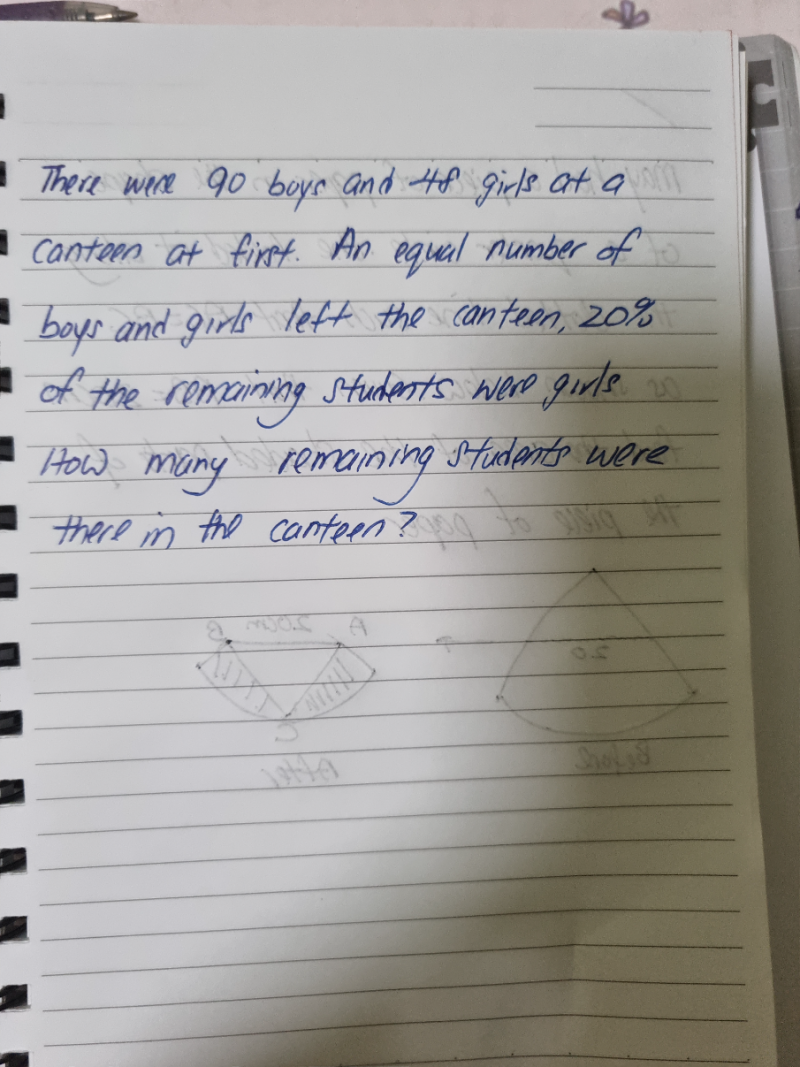 There were 90 boys and 48 girls at a
canteen at first. An equal number of
boys and girls left the canteen, 20%
of the remaining students were girls
How many remaining students were
there in the canteen?